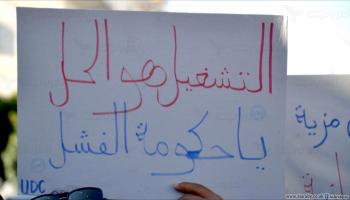 التشغيل هو الحل
ياحكومة الفشل
UDC
مزية